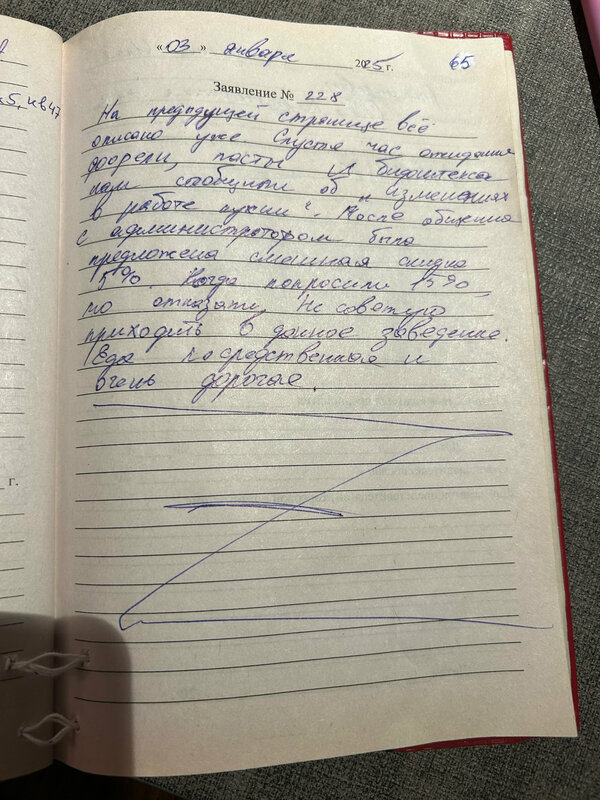 5, кв47
г.
«03» января 2025 г. 65
Заявление № 228
На предыдущей странице всё
описано уже Спустя час ожидания
форели, пасты и бифштекса
нам сообщили об "изменениях
в работе кухни". После общения
с администратором была
предложена смешная скидка
5%. Когда попросили 15%,
то отказали. Не советую
приходить в данное заведение.
Еда посредственная и
очень дорогая.